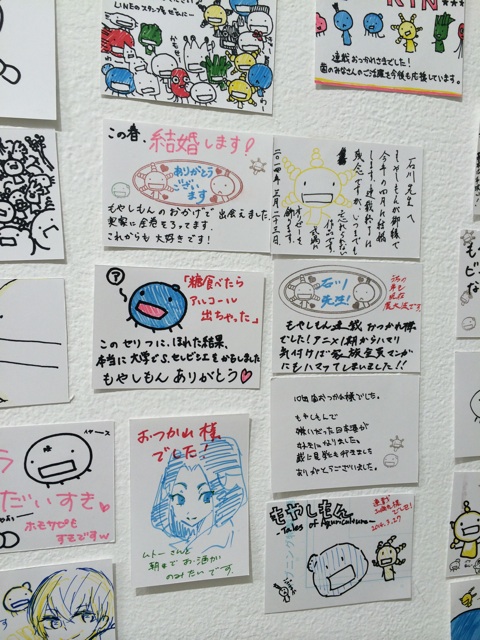 LINEのスタンプも
連載おつかれさまでした!
菌のみなさんのご活躍を今後も応援しています。
この春、結婚します!
ありがとう
ございます
もやしもんのおかげで 出会えました。
実家に全巻そろってます。
これからも 大好きです!
石川先生へ
もやしもんが御縁で
今年の四月に結婚
します。連載終了は
残念ですが、いつまでも
忘れられない
作品です。
二〇一四年三月二十三日
「糖食べたら
アルコール
出ちゃった」
このせりフに、ほれた結果、
本当に大学でS.セレビシエを
もやしもん ありがとう
石川
先生!
もやしもん連載おつかれ様
でした!アニメ1期からハマり
気付けば家族全員マンガ
にもハマってしまいました!!
10年間おつかれ様でした。
もやしもんで
嫌いだった日本酒が
好きになりました。
蔵に見学も行きました
ありがとうございました。
おつかれ様
でした!
ムトーさんと
朝までお酒が
のみたいです。
だいすき
ホモサピも
すきですw
もやしもん
-Tales of Agriculture-
連載
お疲れ様
でした!
2014.3.27